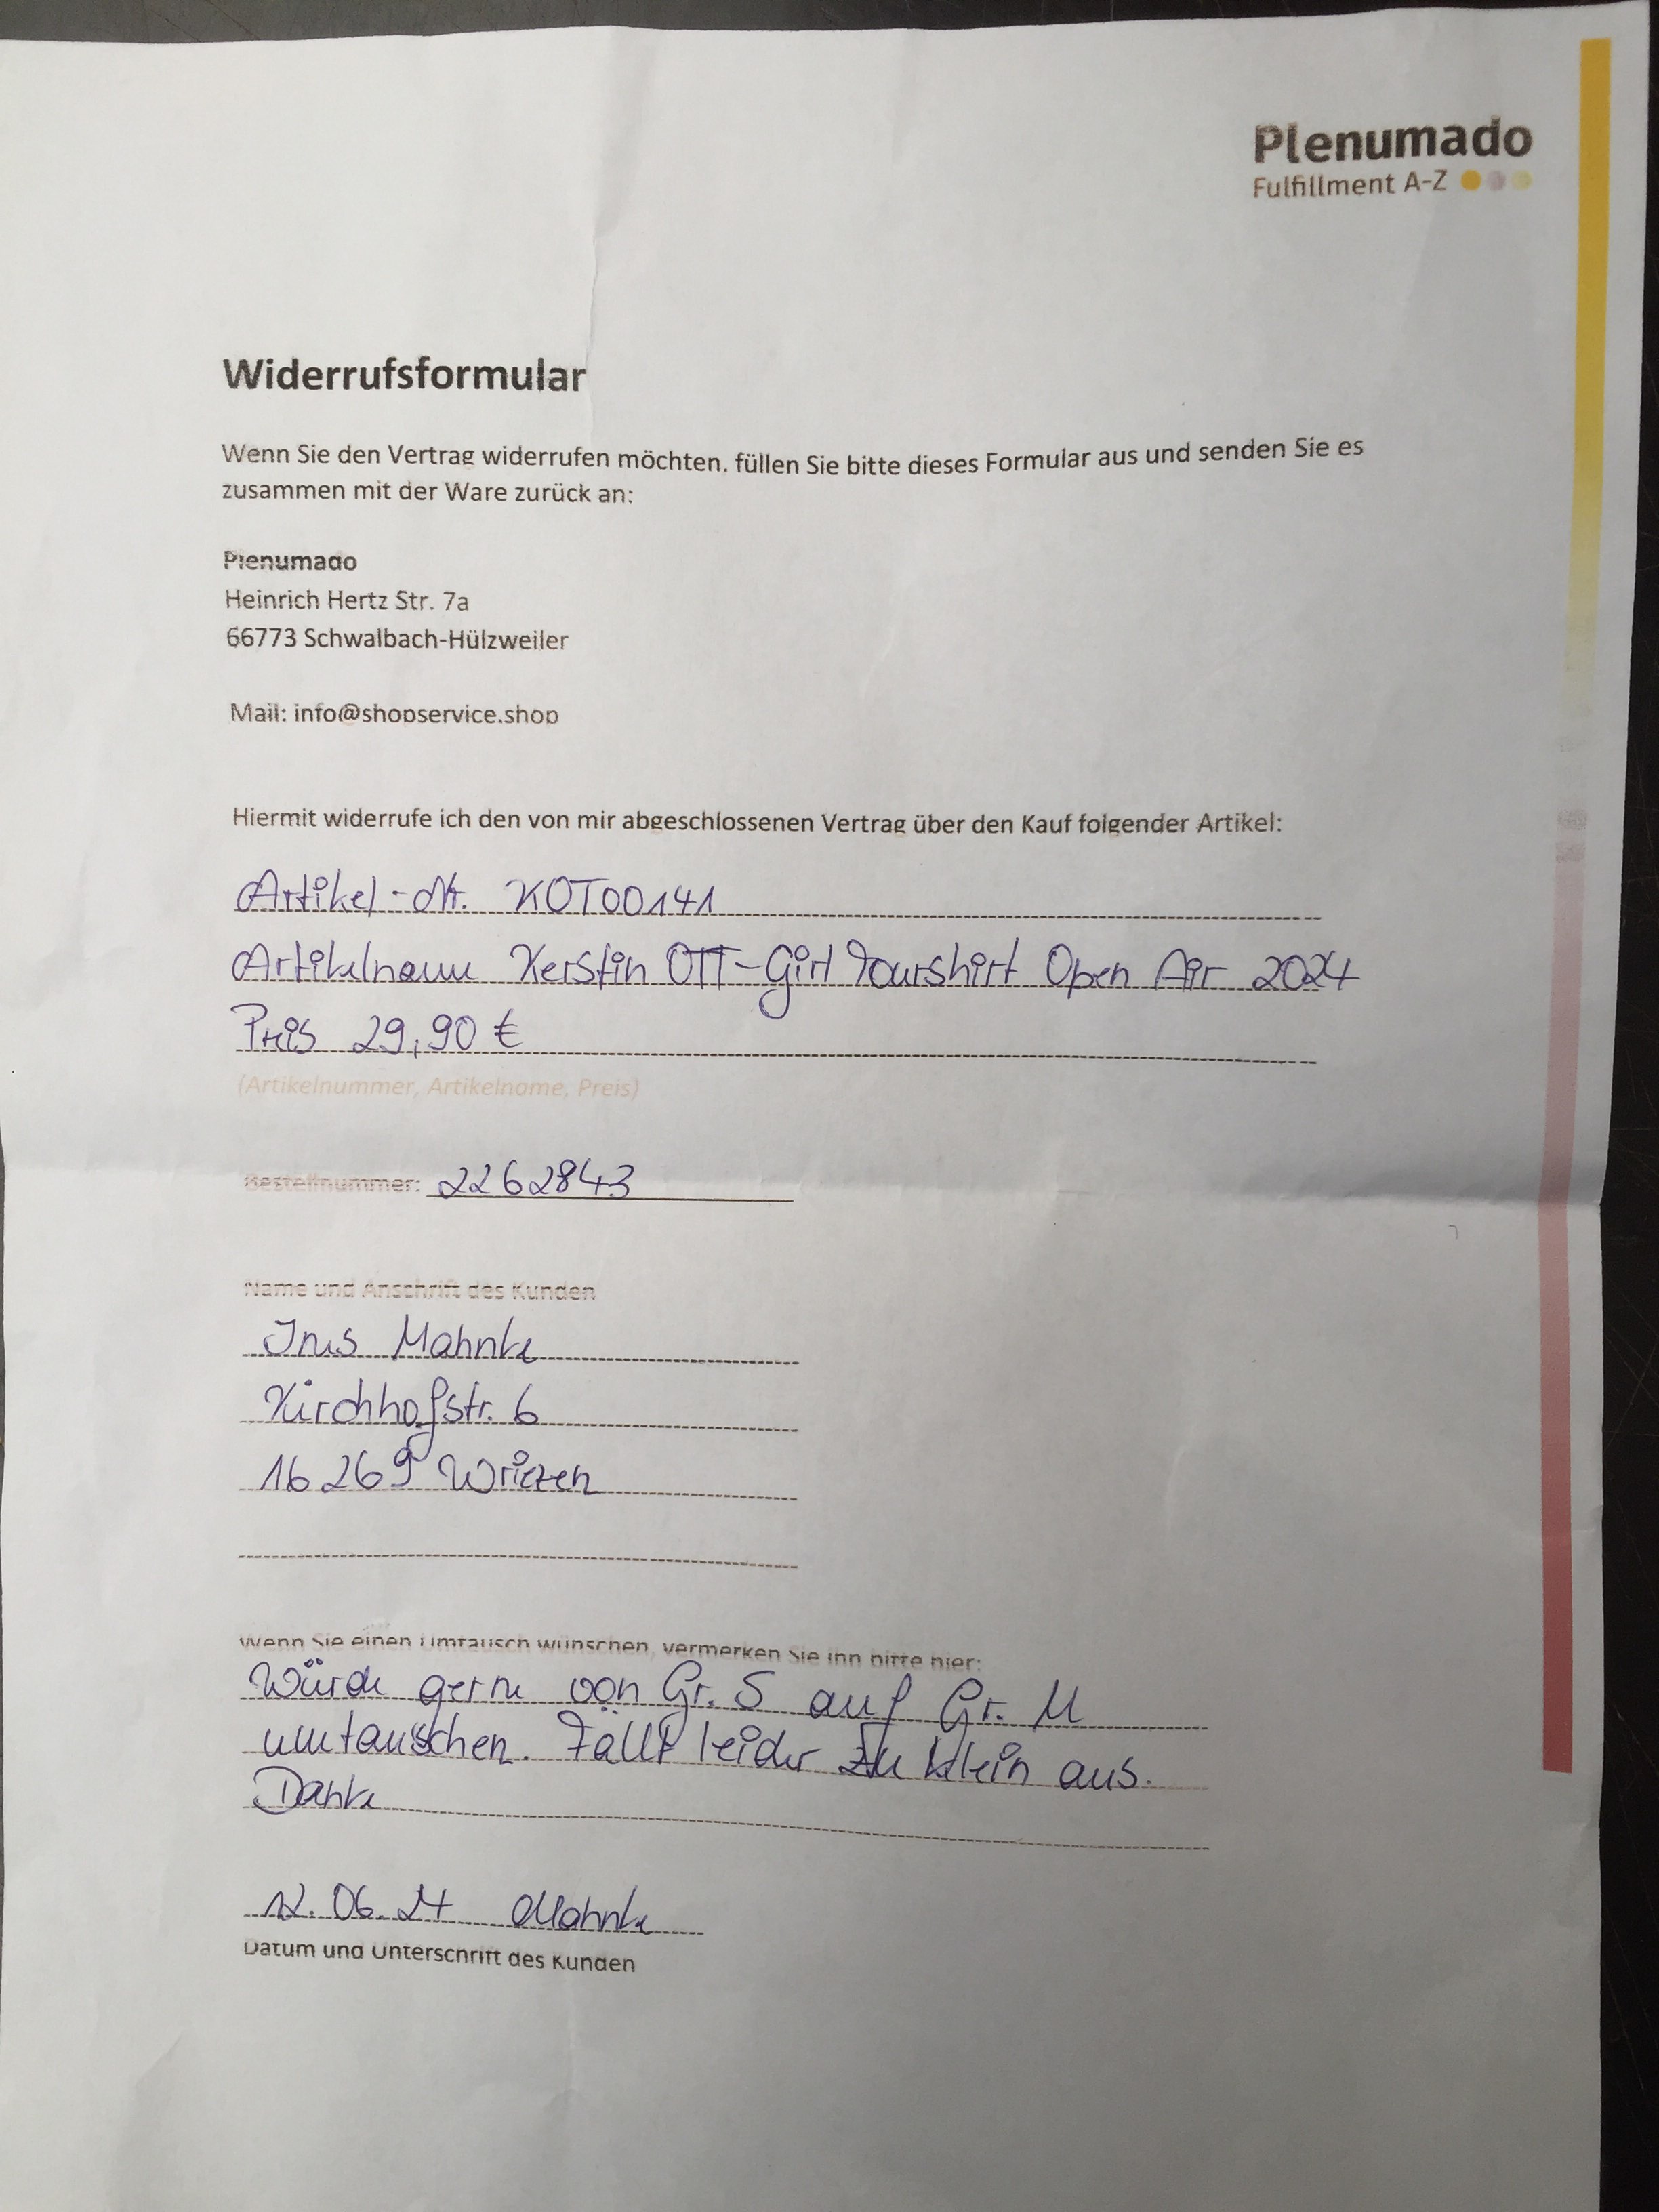 Plenumado
Fulfillment A-Z
Widerrufsformular
Wenn Sie den Vertrag widerrufen möchten, füllen Sie bitte dieses Formular aus und senden Sie es
zusammen mit der Ware zurück an:
Plenumado
Heinrich Hertz Str. 7a
66773 Schwalbach-Hülzweiler
Mail: info@shopservice.shop
Hiermit widerrufe ich den von mir abgeschlossenen Vertrag über den Kauf folgender Artikel:
Artikel-Nr. KOT00141
Artikelname Kerstin OTT-Girl Tourshirt Open Air 2024
Preis 29,90 €
(Artikelnummer, Artikelname, Preis)
Bestellnummer: 2262843
Name und Anschrift des Kunden
Ines Mahnke
Kirchhofstr. 6
16269 Wriezen
Wenn Sie einen Umtausch wünschen, vermerken Sie ihn bitte hier:
Würde gerne von Gr. S auf Gr. M
umtauschen. Fällt leider zu klein aus.
Danke
12.06.24 Mahnke
Datum und Unterschrift des Kunden